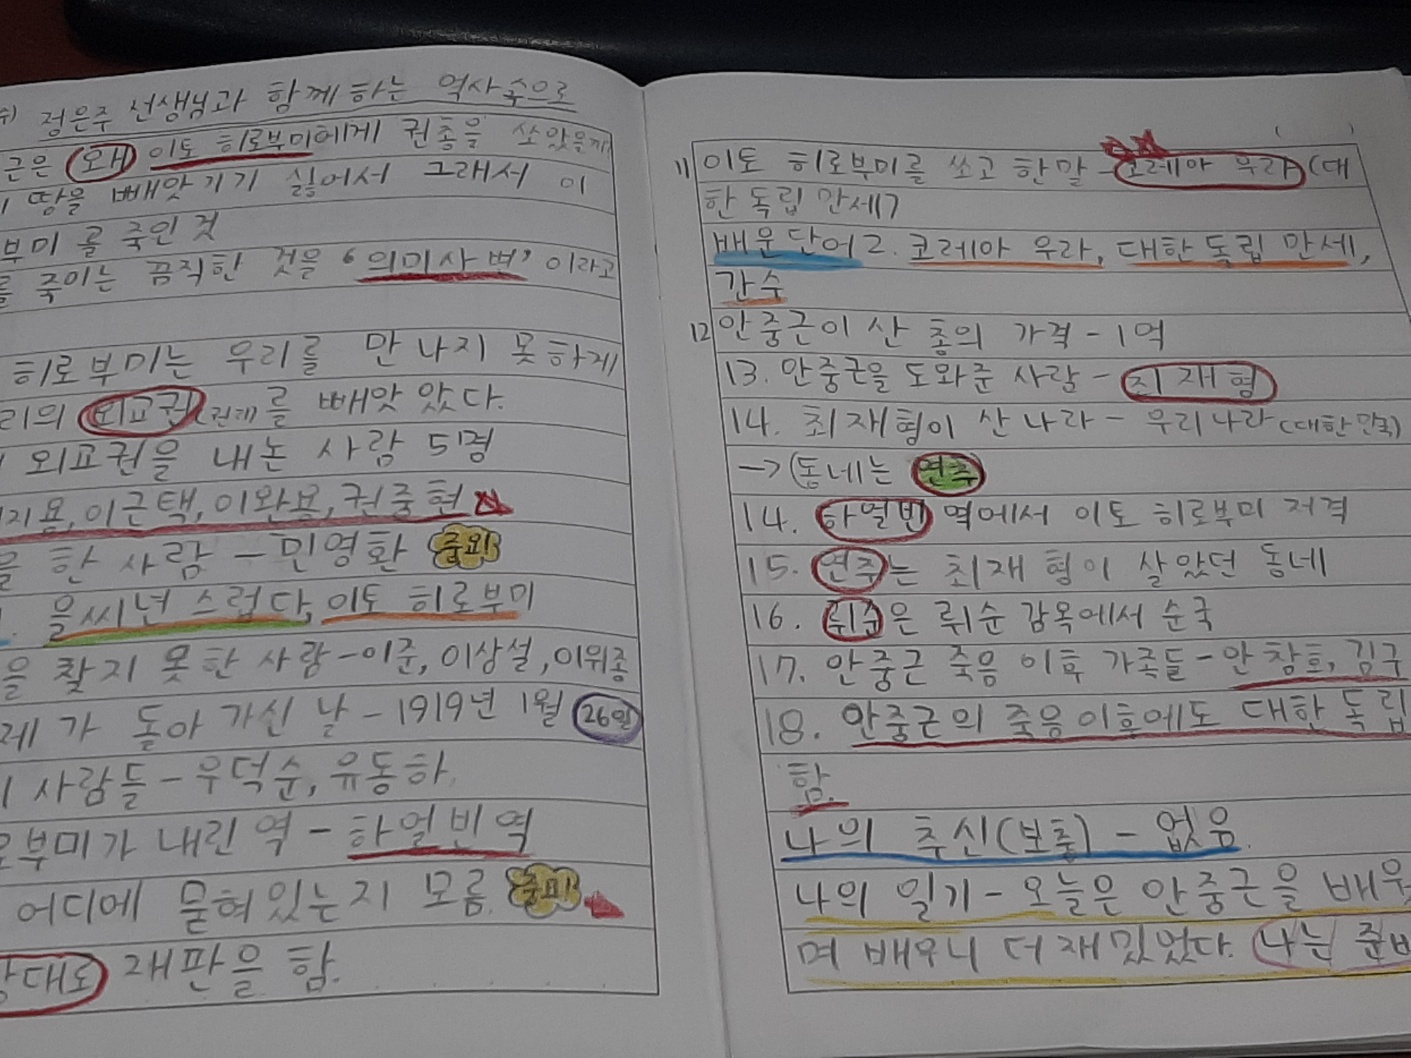 정은주 선생님과 함께하는 역사속으로
근은 왜 이토 히로부미에게 권총을 쏘았을까
땅을 빼앗기기 싫어서 그래서 이
부미를 죽인 것
를 죽이는 끔직한 것을 '의미사변'이라고
히로부미는 우리를 만나지 못하게
리의 외교권(권예)를 빼앗았다.
외교권을 내논 사람 5명
지용, 이근택, 이완용, 권중현
을 한 사람 - 민영환 중요!
을씨년스럽다, 이토 히로부미
을 찾지 못한 사람 - 이준, 이상설, 이위종
제가 돌아가신 날 - 1919년 1월 26일
사람들 - 우덕순, 유동하
로부미가 내린 역 - 하얼빈역
어디에 묻혀있는지 모름.
재판을 함.
11 이토 히로부미를 쏘고 한말 - 코레아 우라 (대
한독립만세)
배운단어 2. 코레아 우라, 대한독립만세,
간수
12 안중근이 산 총의 가격 - 1억
13. 안중근을 도와준 사람 - 최재형
14. 최재형이 산 나라 - 우리나라(대한민국)
→ (동네는 연추
14. 하얼빈 역에서 이토 히로부미 저격
15. 연추는 최재형이 살았던 동네
16. 뤼순은 뤼순 감옥에서 순국
17. 안중근 죽음 이후 가족들 - 안창호, 김구
18. 안중근의 죽음이후에도 대한독립
함.
나의 추신(보충) - 없음.
나의 일기 - 오늘은 안중근을 배우
며 배우니 더 재밌었다. 나는 준비